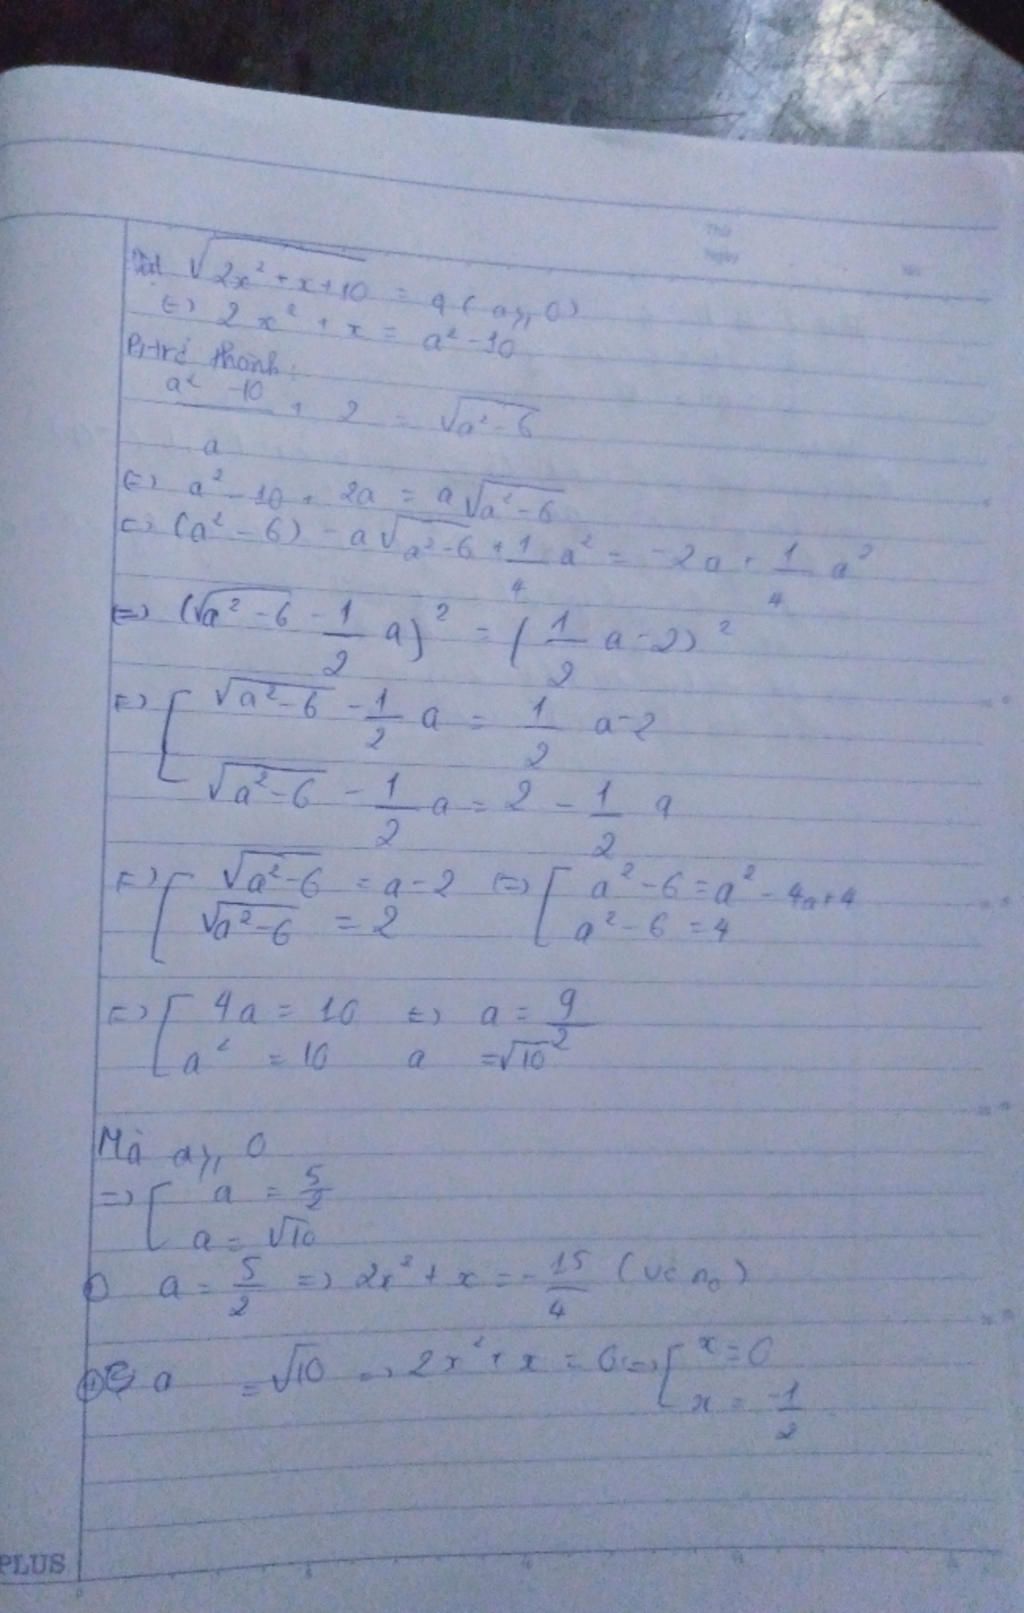 Đặt √(2x² + x + 10) = a ( a ⩾ 0)
<=> 2x² + x = a² - 10
Pt trở thành:
(a² - 10)/a + 2 = √(a² - 6)
<=> a² - 10 + 2a = a√(a² - 6)
<=> (a² - 6) - a√(a² - 6) + 1/4 a² = -2a + 1/4 a²
<=> (√(a² - 6) - 1/2 a)² = (1/2 a - 2)²
<=> [ √(a² - 6) - 1/2 a = 1/2 a - 2
√(a² - 6) - 1/2 a = 2 - 1/2 a
<=> [ √(a² - 6) = a - 2 <=> [ a² - 6 = a² - 4a + 4
√(a² - 6) = 2 a² - 6 = 4
<=> [ 4a = 10 <=> a = 9/2
a² = 10 a = √10
Mà a ⩾ 0
=> [ a = 5/2
a = √10
a = 5/2 => 2x² + x = -15/4 (vô n₀)
a = √10 => 2x² + x = 0 <=> [ x = 0
x = -1/2
Thứ
Ngày
No.
PLUS